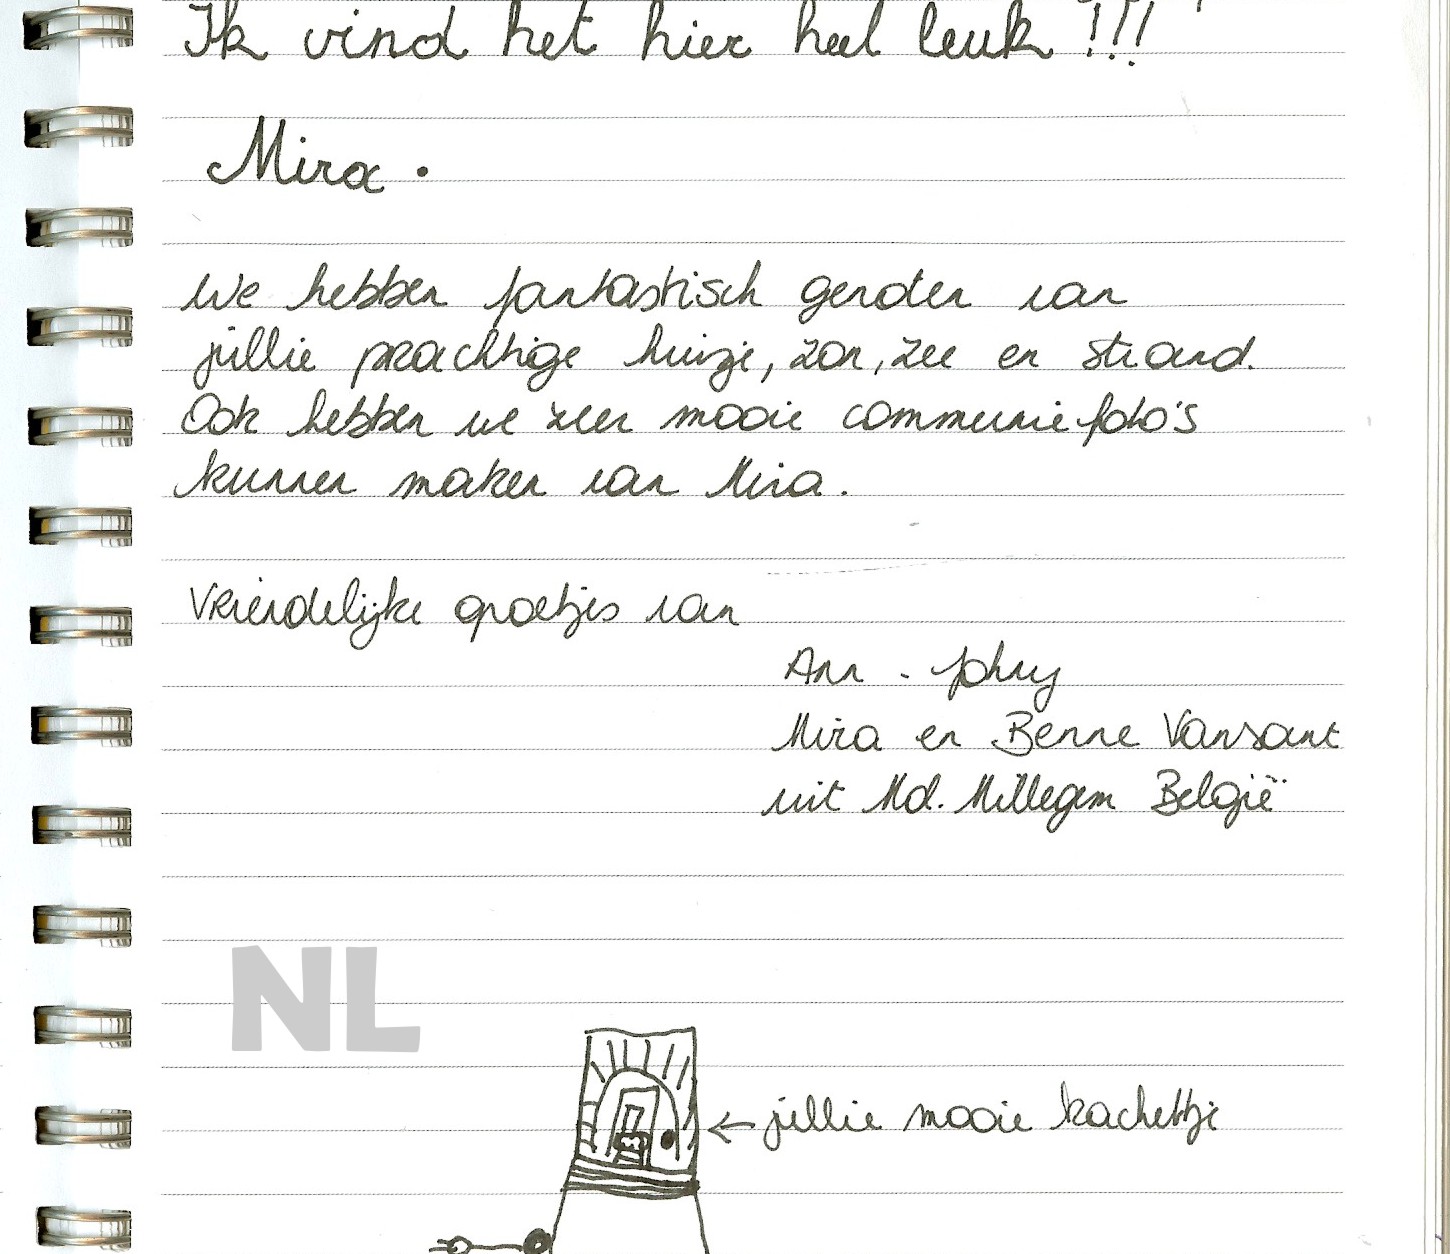 Ik vind het hier heel leuk !!!
Mira .
We hebben fantastisch genoten van
jullie prachtige huisje, zon, zee en strand.
Ook hebben we zeer mooie communiefoto's
kunnen maken van Mira.
Vriendelijke groetjes van
Ann - Johny
Mira en Benne Vansant
uit Md. Millegem België
NL
← jullie mooie kacheltje